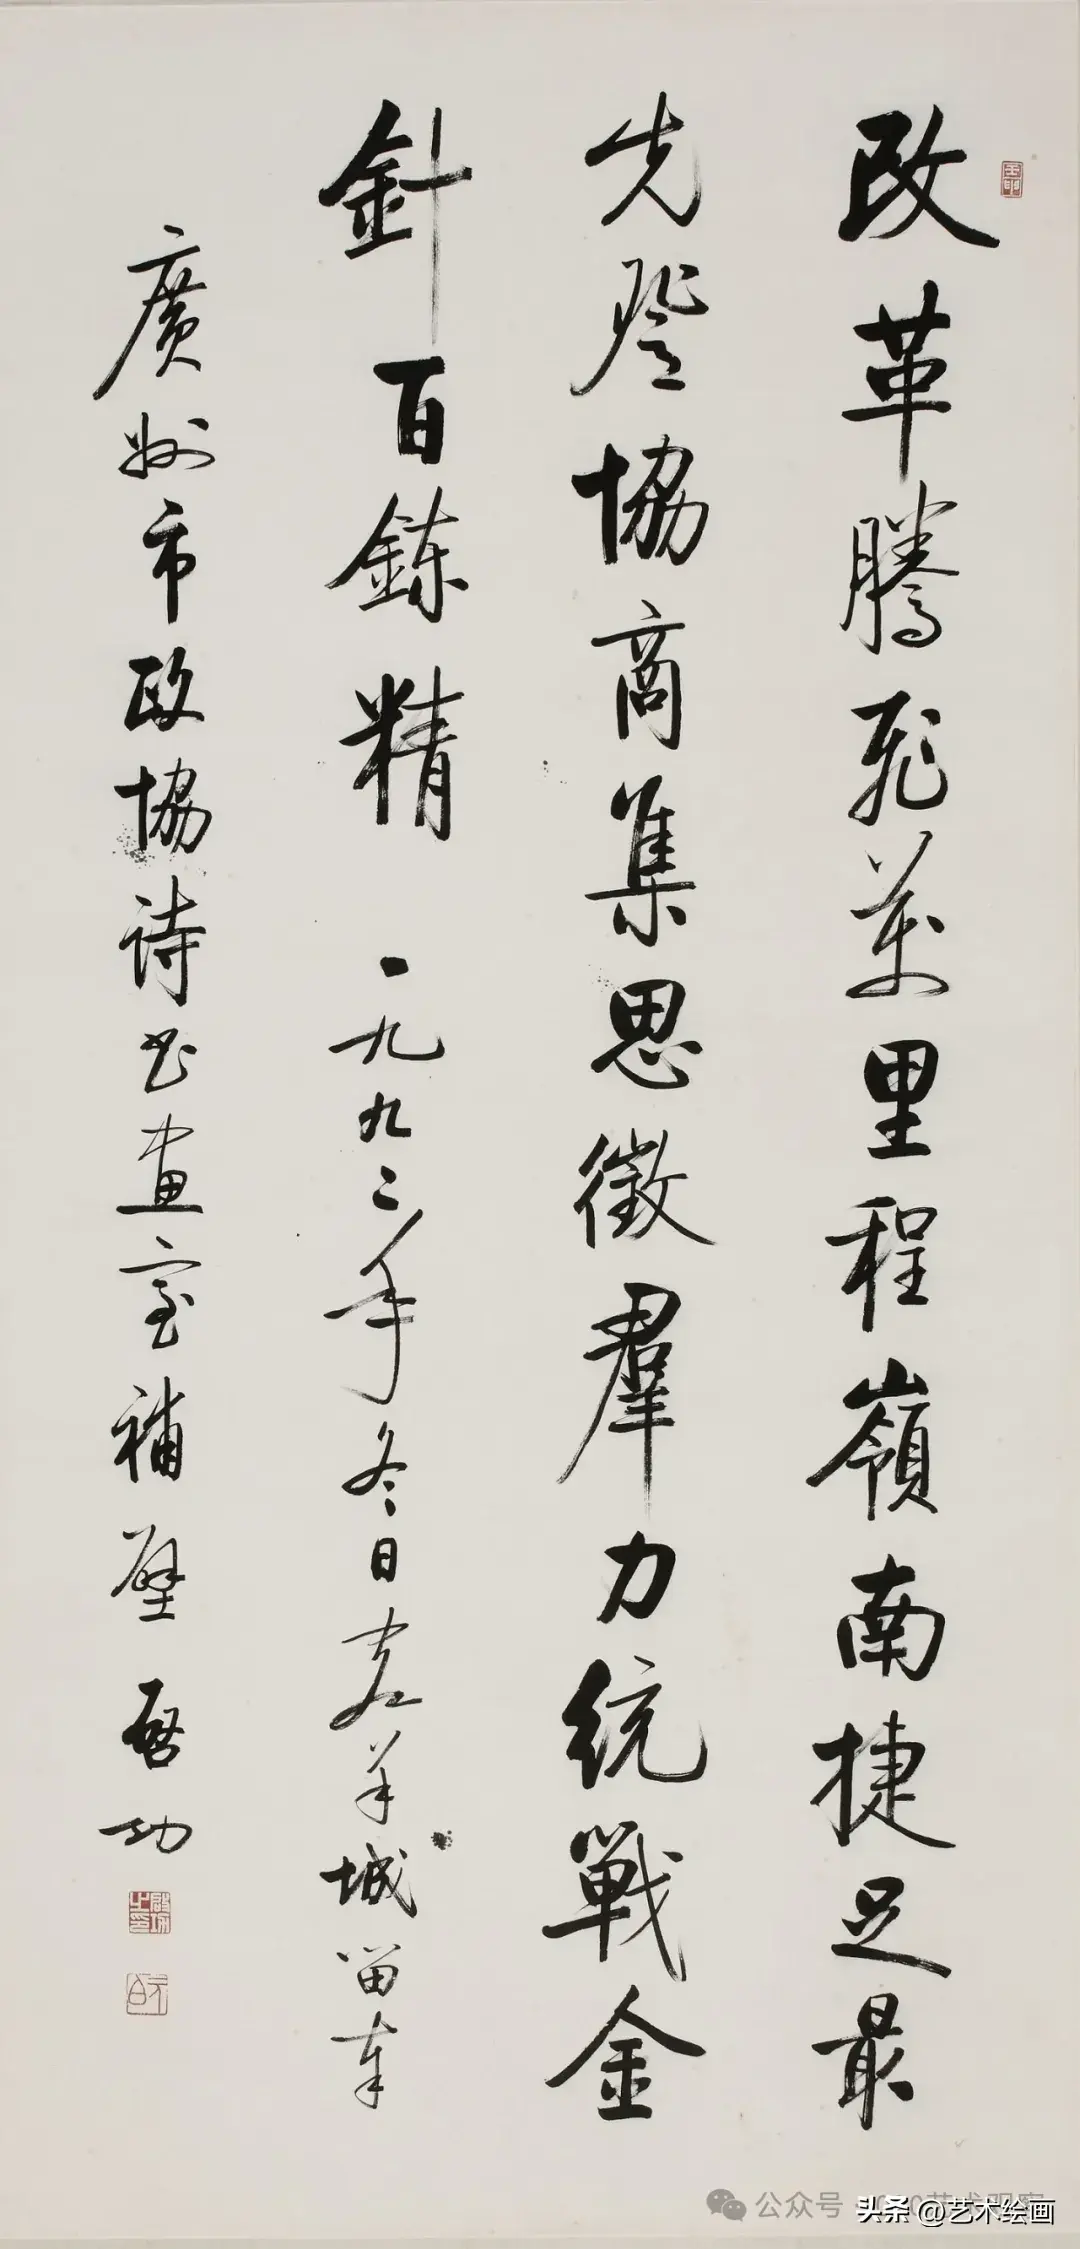 改革騰飛萬里程嶺南捷足最
先登協商集思徵羣力統戰金
針百鍊精 一九九二年冬日羊城留奉
廣州市政協詩書畫室補壁 啓功
啓功之印
元白
公众号
头条 @艺术绘画